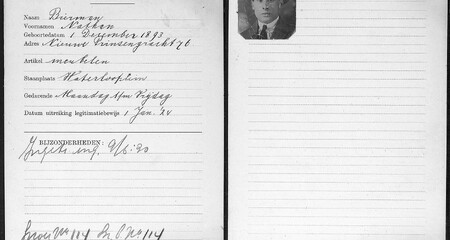 Naam Bierman
Voornamen Nathan
Geboortedatum 1 December 1893
Adres Nieuwe Prinsengracht 76
Artikel meubelen
Staanplaats Waterlooplein
Gedurende Maandag t/m Vrijdag
Datum uitreiking legitimatiebewijs 1 Jan. '24
BIJZONDERHEDEN: